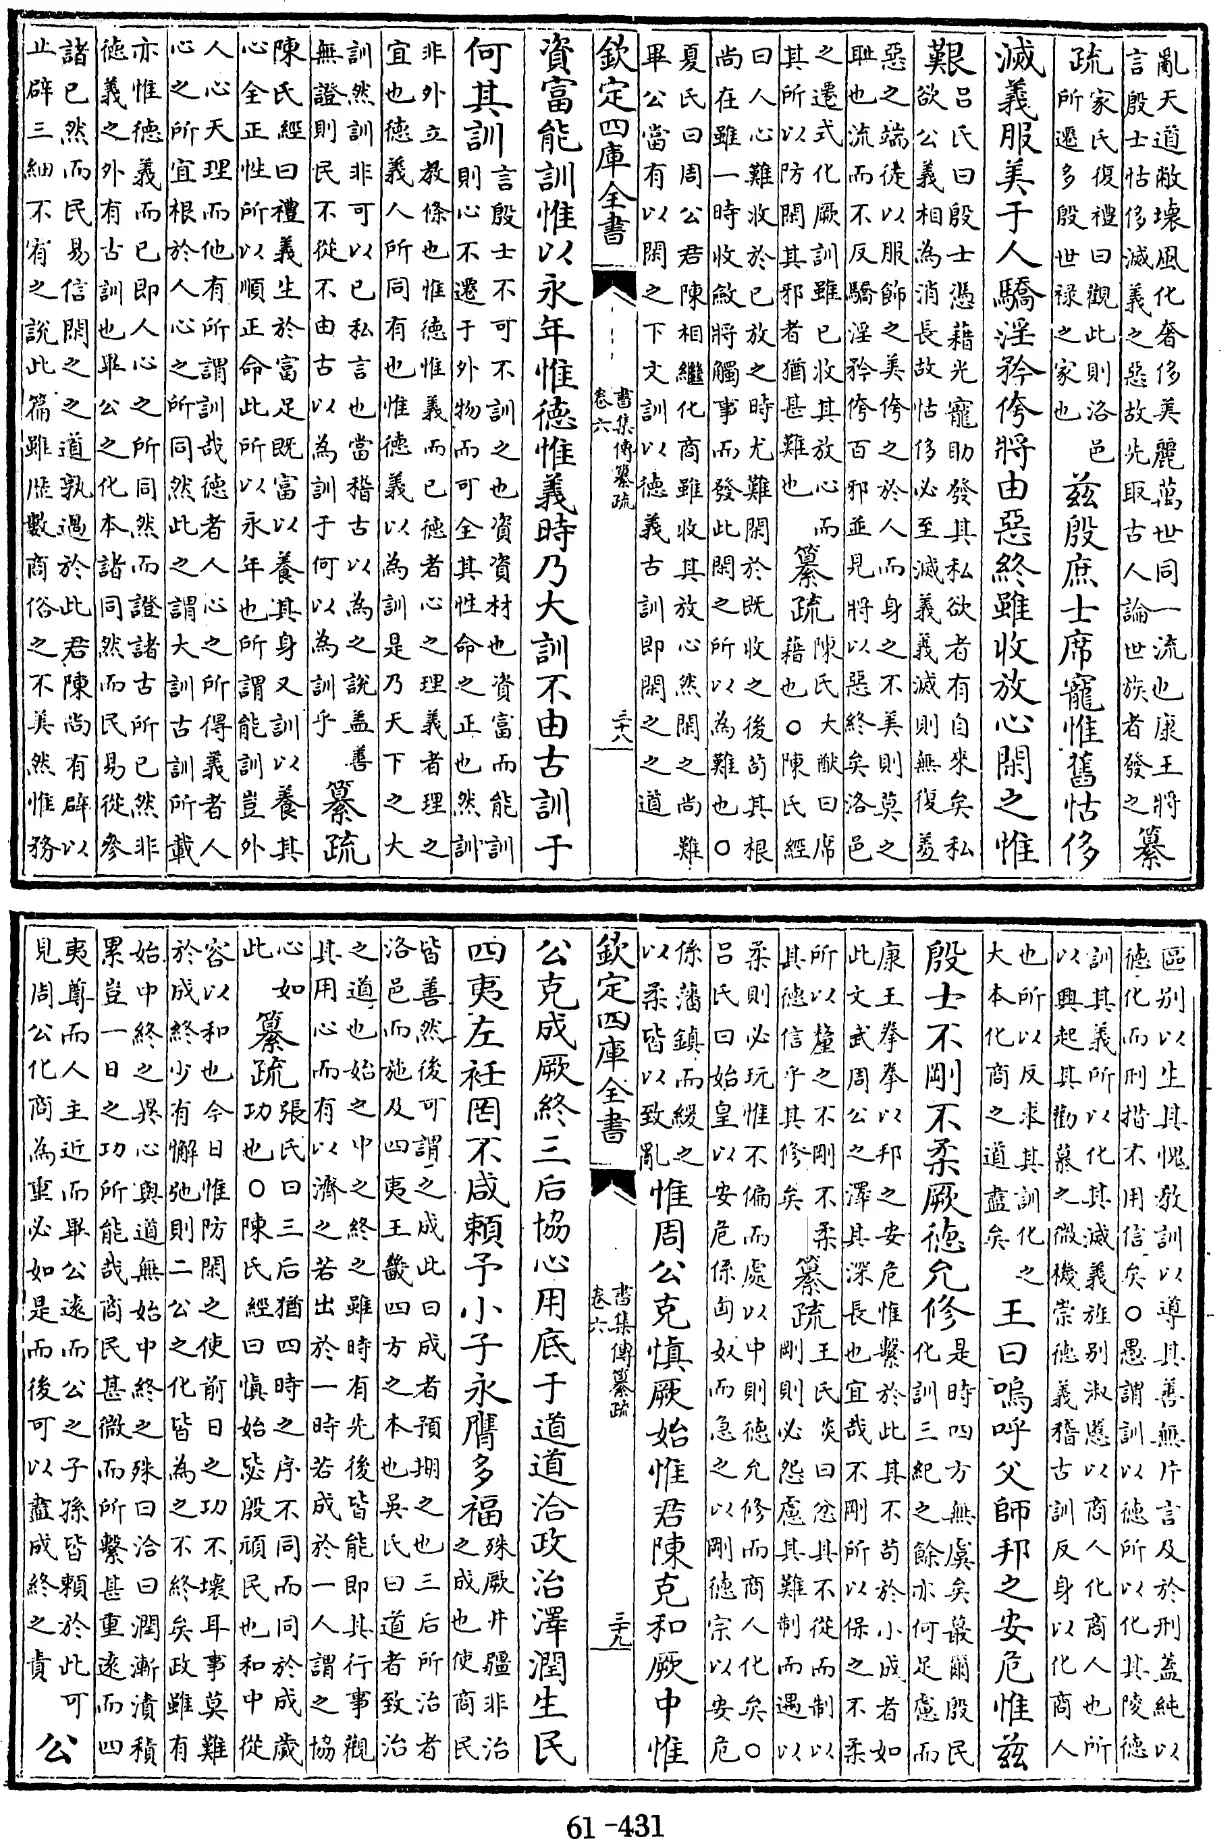 亂天道敝壞風化奢侈美麗萬世同一流也康王將
言殷士怙侈滅義之惡故先取古人論世族者發之
纂
疏
家氏復禮曰觀此則洛邑
所遷多殷世祿之家也
茲殷庶士席寵惟舊怙侈
滅義服美于人驕淫矜侉將由惡終雖收放心閑之惟
艱
呂氏曰殷士憑藉光寵助發其私欲者有自來矣私
欲公義相為消長故怙侈必至滅義義滅則無復羞
惡之端徒以服飾之美侉之於人而身之不美則莫之
恥也流而不反驕淫矜侉百邪並見將以惡終矣洛邑
之遷式化厥訓雖已收其放心而
其所以防閑其邪者猶甚難也
纂疏
陳氏大猷曰席
藉也○陳氏經
曰人心難收於已放之時尤難閑於既收之後苟其根
尚在雖一時收斂將觸事而發此閑之所以為難也○
夏氏曰周公君陳相繼化商雖收其放心然閑之尚難
畢公當有以閑之下文訓以德義古訓即閑之之道
欽定四庫全書
書集傳纂疏
卷六
三十八
資富能訓惟以永年惟德惟義時乃大訓不由古訓于
何其訓
言殷士不可不訓之也資資材也資富而能訓
則心不遷于外物而可全其性命之正也然訓
非外立教條也惟德惟義而已德者心之理義者理之
宜也德義人所同有也惟德義以為訓是乃天下之大
訓然訓非可以已私言也當稽古以為之說蓋善
無證則民不從不由古以為訓于何以為訓乎
纂疏
陳氏經曰禮義生於富足既富以養其身又訓以養其
心全正性所以順正命此所以永年也所謂能訓豈外
人心天理而他有所謂訓哉德者人心之所得義者人
心之所宜根於人心之所同然此之謂大訓古訓所載
亦惟德義而已即人心之所同然而證諸古所已然非
德義之外有古訓也畢公之化本諸同然而民易從參
諸已然而民易信閑之之道孰過於此君陳尚有辟以
止辟三細不宥之說此篇雖歷數商俗之不美然惟務
區别以生其愧教訓以導其善無片言及於刑蓋純以
德化而刑措不用信矣○愚謂訓以德所以化其陵德
訓其義所以化其滅義旌别淑慝以商人化商人也所
以興起其勸慕之微機崇德義稽古訓反身以化商人
也所以反求其訓化之
大本化商之道盡矣
王曰嗚呼父師邦之安危惟茲
殷士不剛不柔厥德允修
是時四方無虞矣蕞爾殷民
化訓三紀之餘亦何足慮而
康王拳拳以邦之安危惟繫於此其不苟於小成者如
此文武周公之澤其深長也宜哉不剛所以保之不柔
所以釐之不剛不柔
其德信乎其修矣
纂疏
王氏炎曰忿其不從而制以
剛則必怨慮其難制而遇以
柔則必玩惟不偏而處以中則德允修而商人化矣○
呂氏曰始皇以安危係匈奴而急之以剛德宗以安危
係藩鎮而緩之
以柔皆以致亂
惟周公克慎厥始惟君陳克和厥中惟
欽定四庫全書
書集傳纂疏
卷六
三十九
公克成厥終三后協心同底于道道洽政治澤潤生民
四夷左衽罔不咸賴予小子永膺多福
殊厥井疆非治
之成也使商民
皆善然後可謂之成此曰成者預期之也三后所治者
洛邑而施及四夷王畿四方之本也吳氏曰道者致治
之道也始之中之終之雖時有先後皆能即其行事觀
其用心而有以濟之若出於一時若成於一人謂之協
心如
此
纂疏
張氏曰三后猶四時之序不同而同於成歲
功也○陳氏經曰慎始毖殷頑民也和中從
容以和也今日惟防閑之使前日之功不壞耳事莫難
於成終少有懈弛則二公之化皆為之不終矣政雖有
始中終之異心與道無始中終之殊曰洽曰潤漸漬積
累豈一日之功所能哉商民甚微而所繫甚重遠而四
夷尊而人主近而畢公遠而公之子孫皆賴於此可
見周公化商為重必如是而後可以盡成終之責
公
61-431